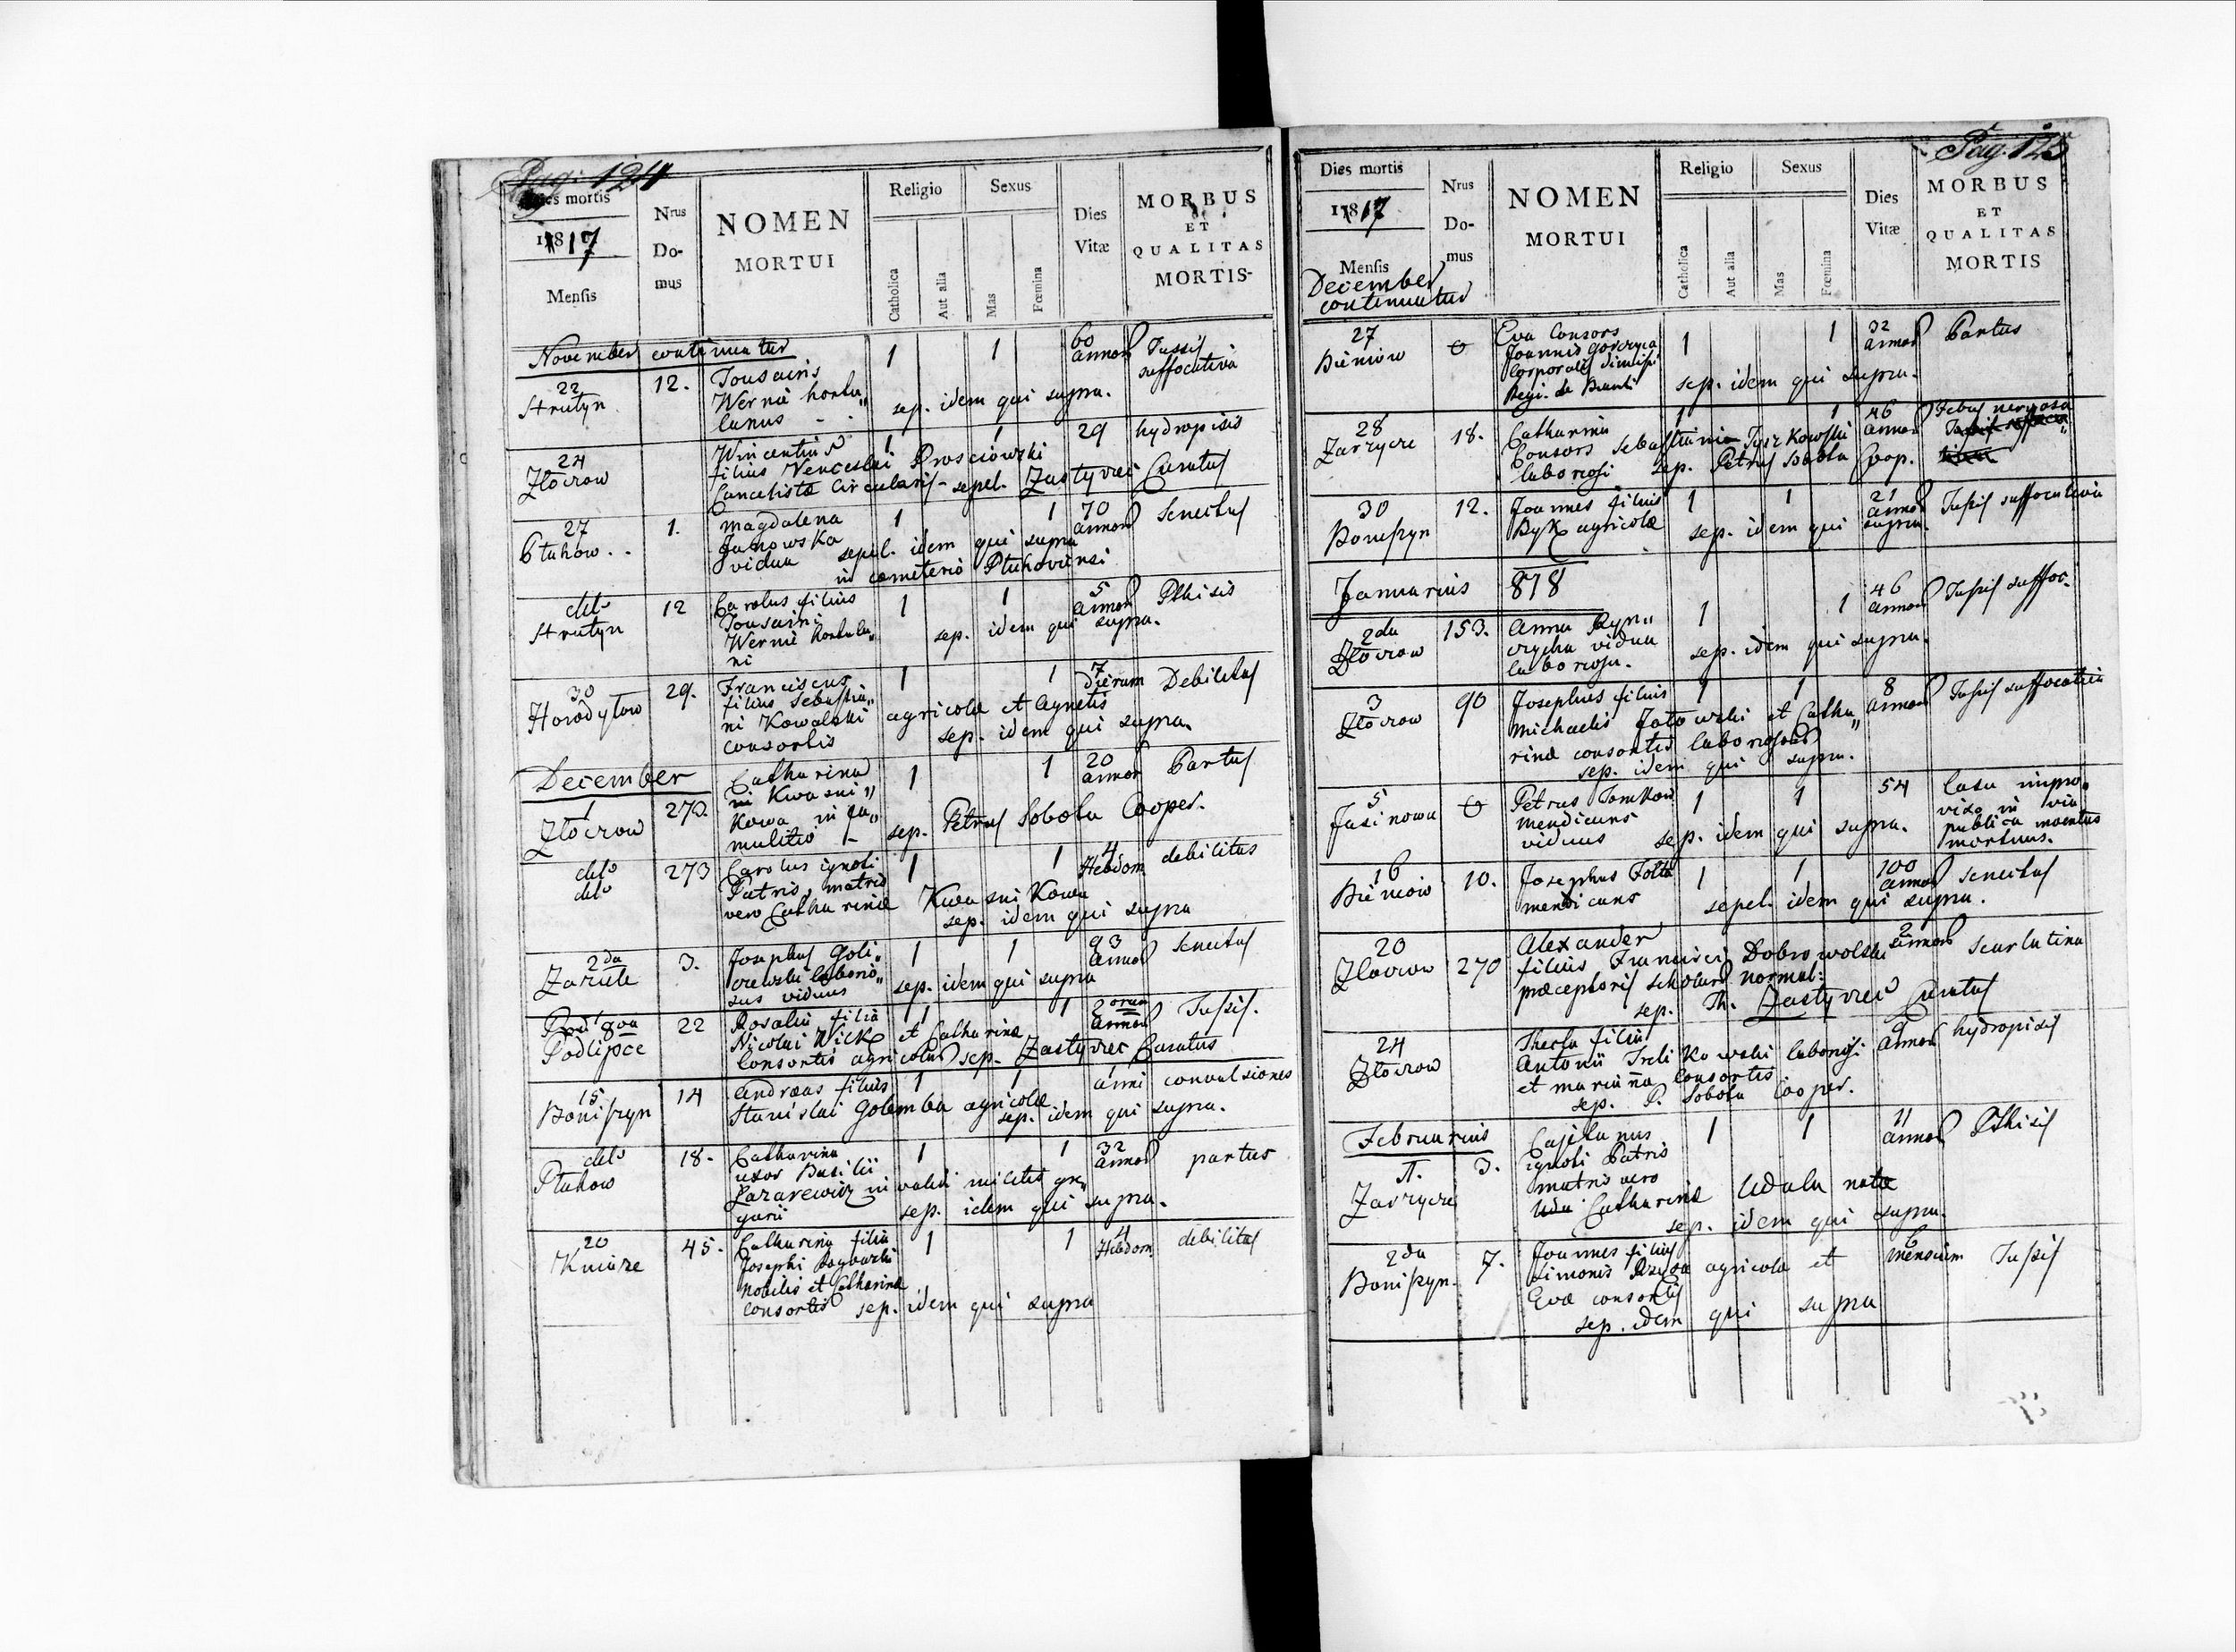 Pag. 124
Dies mortis
1817
Mensis
Nrus
Do-
mus
NOMEN
MORTUI
Religio
Catholica
Aut alia
Sexus
Mas
Fœmina
Dies
Vitæ
MORBUS
ET
QUALITAS
MORTIS
November continuatur
22
Strutyn
12.
Tousains
Wernie hortu„
lanus - .
1 1
sep. idem qui supra.
60
annor
Tussis
suffocativa
24
Złoczow
Wincentius
filius Venceslai Prosciowski
Cancelistæ Circularis - sepel. Zastyrzec Curatus
1 1
29
hydropisis
27
Ptuhow. .
1.
Magdalena
Janowska
vidua sepul. idem qui supra
in cæmeterio Ptuhoviensi
1 1
70
annor
Senectus
detto
Strutyn
12
Carolus filius
Tousaini
Wernie hortula„
ni
1 1
sep. idem qui supra.
5
annor
Pthisis
30
Horodyłow
29.
Franciscus
filius Sebastia„
ni Kowalski agricolæ et Agnetis
consortis sep. idem qui supra.
1 1
7
dierum
Debilitas
December
1
Złoczow
273.
Catharina
Kwasni„
kowa in fa„
mulitio -
1 1
sep. Petrus Sobota Cooper.
20
annor
Partus
detto
detto
273
Carolus ignoti
Patris, matris
vero Catharinæ Kwasnikowa
sep. idem qui supra
1 1
4
Hebdom
debilitas
2da
Zazule
3.
Josephus Goli„
czewski laborio„
sus viduus
1 1
sep. idem qui supra
93
annor
Senectus
8va
Podlipce
22
Rosalia filia
Nicolai Wick et Catharinæ
Consortis agricolar sep. Zastyrzec Curatus
1 1
2orum
annor
Tussis.
15
Boniszyn
14
Andreas filius
Stanislai Golemba agricolæ
sep. idem qui supra.
1 1
1
anni
convulsiones
detto
Ptuhow
18.
Catharina
uxor Basilii
Lazarewicz invalidi militis gre„
garii sep. idem qui supra.
1 1
32
annor
partus
20
Kniaze
45.
Catharina filia
Josephi
nobilis et Catharinæ
consortis sep. idem qui supra
1 1
4
Hebdom.
debilitas
Pag. 125
Dies mortis
1817
Mensis
December
continuatur
Nrus
Do-
mus
NOMEN
MORTUI
Religio
Catholica
Aut alia
Sexus
Mas
Fœmina
Dies
Vitæ
MORBUS
ET
QUALITAS
MORTIS
27
Bieniow
0
Eva Consors
Joannis
Corporalis dimissi
Regi. de
1 1
sep. idem qui supra.
32
annor
Partus
28
Zarzyce
18.
Catharina
Consors Sebastiani Tyszkowski
laboriosi sep. Petrus Sobota Coop.
1 1
46
annor
Febris nervosa
30
Boniszyn
12.
Joannes filius
Byk agricolæ
1 1
sep. idem qui supra.
21
annor
Tussis suffocativa
Januarius 818
2da
Złoczow
153.
Anna Ryn„
czycha vidua
laboriosa.
1 1
sep. idem qui supra.
46
annor
Tussis suffoc.
3
Złoczow
90
Josephus filius
Michaelis Jatowski et Catha„
rinæ consortis laboriosor
sep. idem qui supra.
1 1
8
annor
Tussis suffocativa
5
Jasinowa
0
Petrus Tomkow
mendicans
viduus
1 1
sep. idem qui supra.
54
Casu impro„
viso in via
publica inventus
mortuus.
16
Bieniow
10.
Josephus Folta
mendicans
1 1
sepel. idem qui supra.
100
annor
Senectus
20
Złoczow
270
Alexander
filius Francisci Dobrowolski
præceptoris scholar normal:
sep. Th. Zastyrzec Curatus
2
annor
Scarlatina
24
Złoczow
Thecla filia
Antonii Trelikowski laboriosi
et Marianna Consortis
sep. P. Sobota Cooper.
9
annor
hydropisis
Februarius
1.
Zarzyce
3.
Cajetanus
ignoti Patris
matris vero
Catharinæ Udala natæ
sep. idem qui supra.
1 1
11
annor
Pthisis
2da
Boniszyn.
7.
Joannes filius
Simonis agricolæ et
Evæ consortis
sep. idem qui supra
6
mensium
Tussis